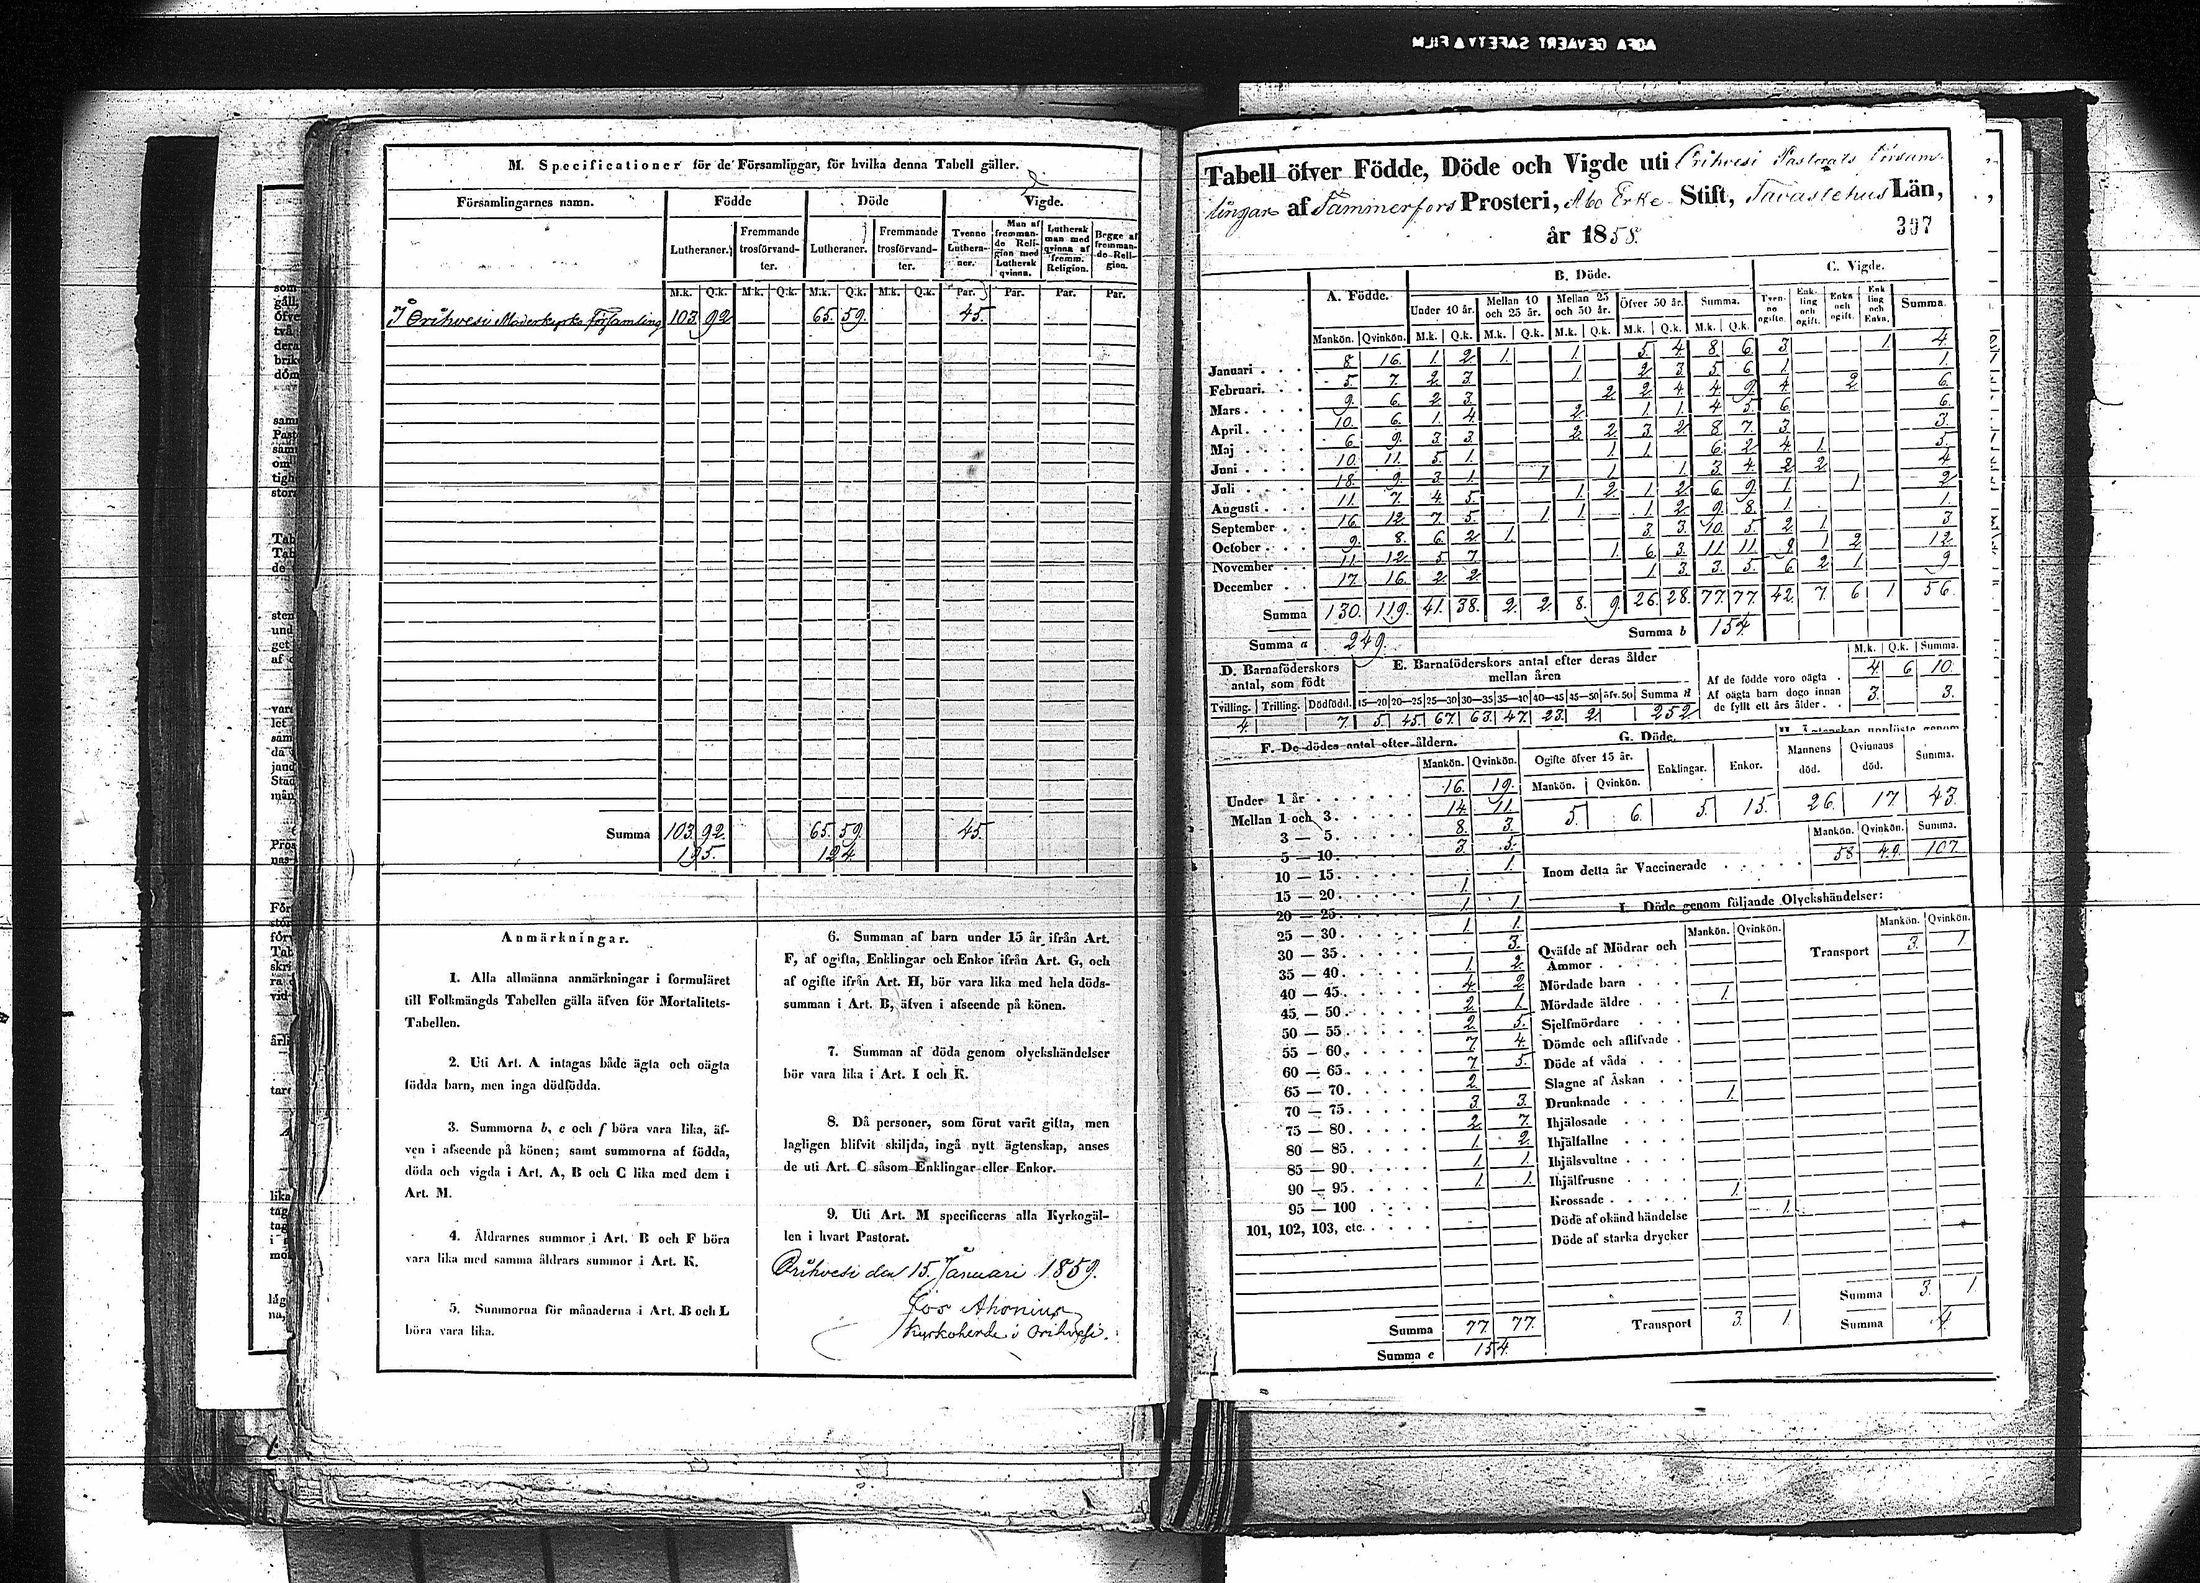 AGFA GEVAERT SAFETY FILM
M. Specificationer för de Församlingar, för hvilka denna Tabell gäller.
Församlingarnes namn. Födde Döde Vigde.
Lutheraner. Fremmande trosförvandter. Lutheraner. Fremmande trosförvandter. Tvenne Lutheraner. Man af fremmande Religion med Luthersk qvinna. Luthersk man med qvinna af fremm. Religion. Begge af fremmande Religion.
M.k. Q.k. M.k. Q.k. M.k. Q.k. M.k. Q.k. Par. Par. Par. Par.
I Orihvesi Moderkyrko Församling 103. 92 65. 59. 45.
Summa 103. 92. 65. 59. 45.
195. 124.
Anmärkningar.
1. Alla allmänna anmärkningar i formuläret
till Folkmängds Tabellen gälla äfven för Mortalitets-
Tabellen.
2. Uti Art. A intagas både ägta och oägta
födda barn, men inga dödfödda.
3. Summorna b, e och f böra vara lika, äf-
ven i afseende på könen; samt summorna af födda,
döda och vigda i Art. A, B och C lika med dem i
Art. M.
4. Åldrarnes summor i Art. B och F böra
vara lika med samma åldrars summor i Art. K.
5. Summorna för månaderna i Art. B och L
böra vara lika.
6. Summan af barn under 15 år ifrån Art.
F, af ogifta, Enklingar och Enkor ifrån Art. G, och
af ogifte ifrån Art. H, bör vara lika med hela döds-
summan i Art. B, äfven i afseende på könen.
7. Summan af döda genom olyckshändelser
bör vara lika i Art. I och K.
8. Då personer, som förut varit gifta, men
lagligen blifvit skiljda, ingå nytt ägtenskap, anses
de uti Art. C såsom Enklingar eller Enkor.
9. Uti Art. M specificeras alla Kyrkogäl-
len i hvart Pastorat.
Orihvesi den 15. Januari 1859.
Kyrkoherde i Orihvesi.
Tabell öfver Födde, Döde och Vigde uti Orihvesi Pastorats Församl-
lingar af Tammerfors Prosteri, Åbo Erke Stift, Tavastehus Län,
år 1858.
307
A. Födde. B. Döde. C. Vigde.
Under 10 år. Mellan 10 och 25 år. Mellan 25 och 50 år. Öfver 50 år. Summa. Tvenne ogifte. Enkling och ogift. Enka och ogift. Enkling och Enka. Summa.
Mankön. Qvinkön. M.k. Q.k. M.k. Q.k. M.k. Q.k. M.k. Q.k. M.k. Q.k.
Januari 8 16. 1. 2. 1. 1. 5. 4. 8. 6. 3. 1 4.
Februari. 5. 7. 2. 3. 1. 2. 3. 5 6 1. 1.
Mars 9. 6. 2 3. 2 2 4 4 9. 4. 2 6.
April. 10. 6. 1. 4 2. 1 1. 4 5. 6. 6.
Maj 6 9. 3 3. 2. 2. 3. 2 8 7. 3. 3.
Juni 10. 11. 5. 1. 1 1. 6 2 4 1. 5.
Juli 18. 9. 3. 1. 1 1. 1. 3 4. 2 2. 4
Augusti 11. 7. 4. 5. 1. 2. 1. 2. 6 9. 1. 1 2
September 16. 12. 7. 5. 1. 1. 1. 2 9 8. 1. 1.
October 9. 8. 6 2. 1. 3 3. 10. 5. 2 1. 3
November 11. 12. 5. 7. 1. 6. 3. 11. 11. 8. 1. 2 12.
December 17 16. 2. 2. 1. 3. 3. 5. 6 2 1. 9
Summa 130. 119. 41. 38. 2. 2. 8. 9. 26. 28. 77. 77. 42. 7 6 1 56.
Summa a 249. Summa b 154.
D. Barnaföderskors antal, som födt
Tvilling. Trilling. Dödfödd.
4. 7.
E. Barnaföderskors antal efter deras ålder mellan åren
15—20 20—25 25—30 30—35 35—40 40—45 45—50 öfv. 50 Summa d
5. 45. 67. 63. 47. 23. 2. 252
M.k. Q.k. Summa.
Af de födde voro oägta . 4. 6 10.
Af oägta barn dogo innan
de fyllt ett års ålder . . 3. 3.
F. De dödes antal efter åldern.
Mankön. Qvinkön.
Under 1 år 16. 19.
Mellan 1 och 3. 14. 11.
3 — 5. 8. 3.
5 — 10. 3. 5.
10 — 15. 1.
15 — 20. 1.
20 — 25. 1. 1.
25 — 30. 1. 1.
30 — 35. 3.
35 — 40. 1. 2.
40 — 45. 4. 2.
45 — 50. 2. 1.
50 — 55. 2. 5.
55 — 60. 7. 4.
60 — 65. 7. 5.
65 — 70. 2.
70 — 75. 3. 3.
75 — 80. 2. 7.
80 — 85. 1. 2.
85 — 90. 1. 1.
90 — 95. 1. 1.
95 — 100
101, 102, 103, etc.
Summa 77. 77.
Summa e 154.
G. Döde.
Ogifte öfver 15 år. Enklingar. Enkor.
Mankön. Qvinkön.
5. 6. 5. 15.
H. Ägtenskap upplöste genom
Mannens död. Qvinnans död. Summa.
26. 17 43.
Mankön. Qvinkön. Summa.
Inom detta år Vaccinerade 58 49. 107.
I. Döde genom följande Olyckshändelser:
Mankön. Qvinkön. Mankön. Qvinkön.
Qväfde af Mödrar och
Ammor
Transport 3. 1
Mördade barn
Mördade äldre 1.
Sjelfmördare
Dömde och aflifvade
Döde af våda
Slagne af Åskan
Drunknade 1.
Ihjälosade
Ihjälfallne
Ihjälsvultne
Ihjälfrusne
Krossade 1.
Döde af okänd händelse 1.
Döde af starka drycker
Summa 3. 1.
Transport 3. 1. Summa 4.